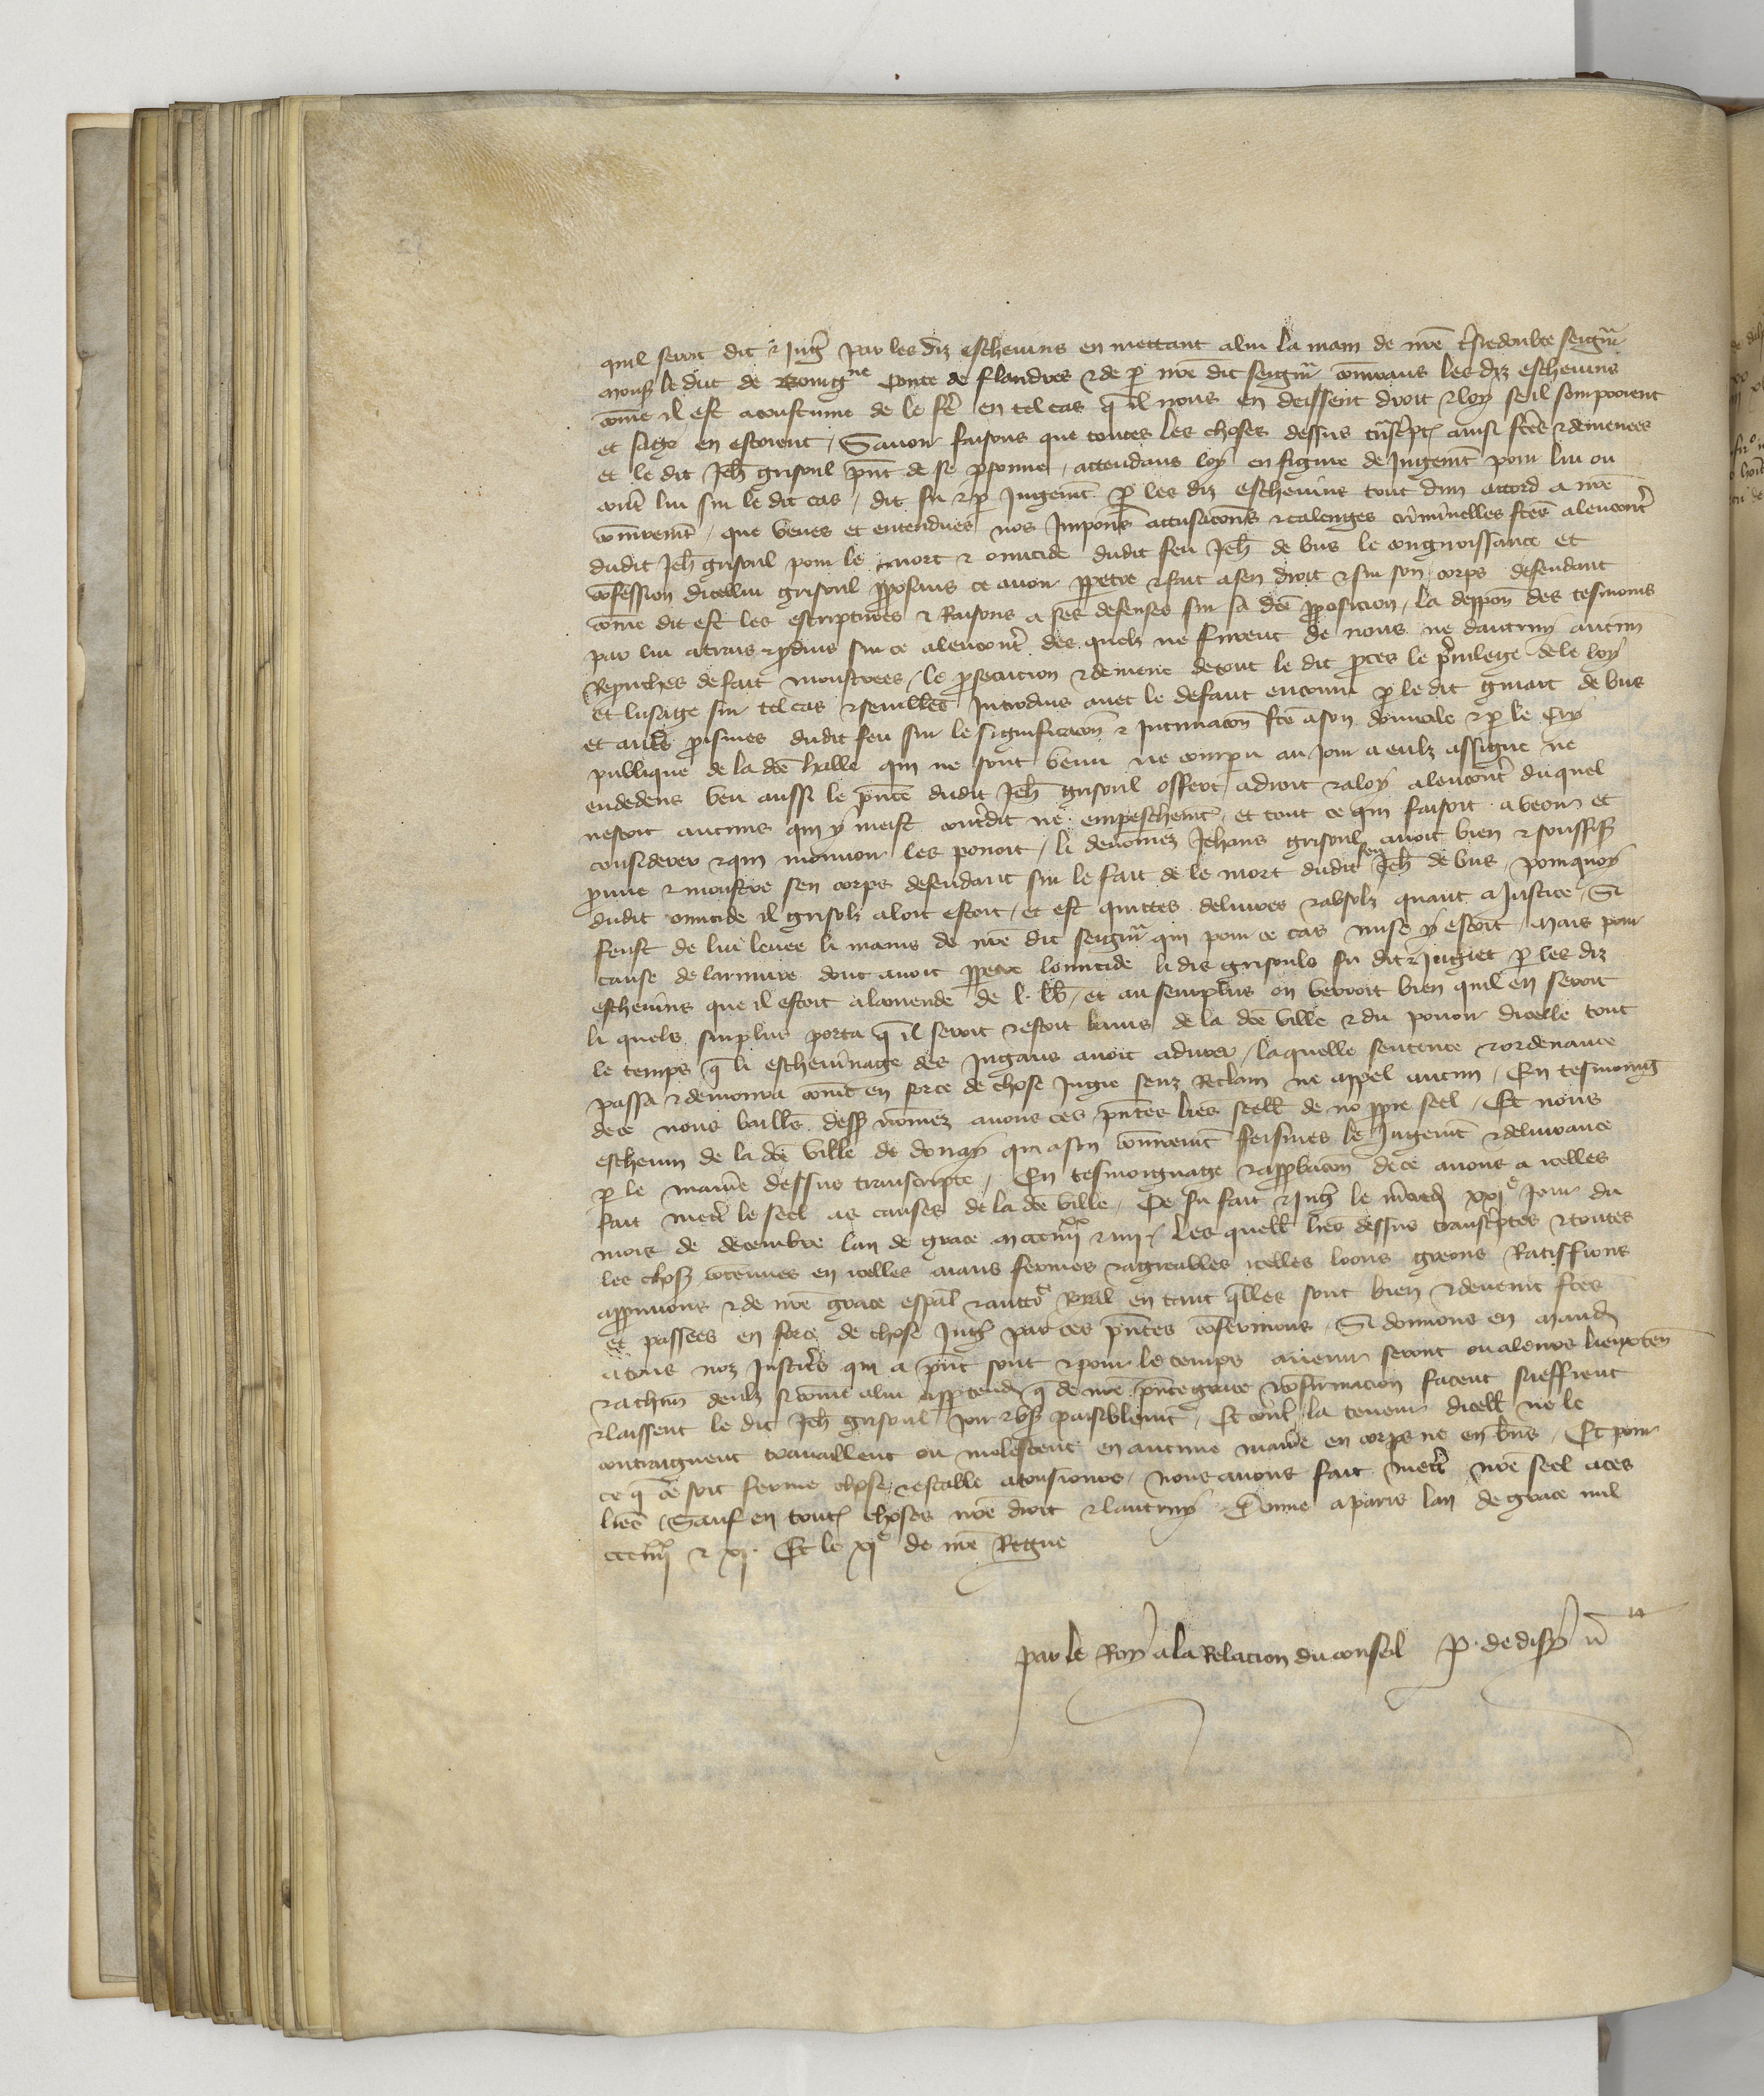 quil seroit dit & jug̃ par les diz eschevins en mettant a lui la main de nr̃e tres redoubte seigñr
mons̃ le duc de Bourg^ne Conte de flandres & de p nr̃e dit seigñr conivrans les diz eschevins
com̃e il est acoustume de le fẽ en tel cas q̃ il nous en deissent droit & loy seil simporoient
et sage en estoient / Savoir faisons que toutes les choses dessus tñscptes ainsi fc̃es & demenees
et le dit Jeh̃ grisoul pñt de se psonne / attendans loy en figure de jugem̃t pour lui ou
cont̃ lui sur le dit cas / dit fu & p jugem̃t p les diz eschevins tout dun accord a nr̃e
coniurem̃t / que veues et entendues nos imposic̃ons accusacions & calenges criminelles fc̃es alencont̃
dudit Jeh̃ grisoul pour le mort & omicide dudit feu Jeh̃ de bus le congnoissance et
cõfession dicellui grisoul pposans ce avoir ppetre & fait a sen droit & sur son corps defendant
com̃e dit est les escriptures & Raisons a ses defenses sur sa dc̃e pposicion / la deppoñ des tesmoins
par lui atrais & pduis sur ce alencont̃ des quelz ne furent de nous ne dautruy aucun
Reprũches de fait monstrees / le psecucion & demene de tout le dit pces le pvilege de le loy
et lusage sur tel cas & semblles introduis avec le defaut encouru p le dit guiart de bus
et autres proismes dudit feu sur le significacoñ & intimacoñ fc̃e a son domicile & p le Cry
publique de la dc̃e halle qui ne sont venu ne compu au jour a eulz assigne ne
endedens veu aussi le pñce dudit Jeh̃ grisoul offert a droit & a loy alencont̃ duquel
nestoit aucuns qui y meist cont̃dit ne empeschem̃t / et tout ce qui faisoit a veoir et
considerer & qui mouvoir les pouoit / li denom̃ez Jehans grisoul avoit bien & souffis̃
prouve & monstre sen corps defendant sur le fait de le mort dudit feu Jeh̃ de bus pourquoy
dudit omicide il grisolz aloit estoit / et est quittes delivres & absolz quant a justice / Si
feust de lui levee li mains de nr̃e dit seigñr qui pour ce cas mise y estoit / Mais pour
cause de larmure dont avoit ppetre lomicide li dis grisouls fu dit & jugiet p les diz
eschevins que il estoit a lamende de l. lb̃ / et au seurplus on verroit bien quil en seroit
li quels surplus porta q̃ il seroit & estoit banis de la dc̃e ville & du pouoir dicelle tout
le temps q̃ li eschevinage des jugans avoit a durer / laquelle sentence & ordenance
passa & demoura com̃e en force de chose jugie senz Reclam ne appel aucun / En tesmoing
de ce nous baillis dess̃ nom̃ez avons ces pñtes lr̃es seell̃ de no ppre seel / Et nous
eschevin de la dc̃e ville de douay qui a son coniurem̃t feismes le jugem̃t & delivrance
p le manie͂ dessus transcripte / En tesmoignage & approbacoñ de ce avons a icelles
fait mett̃ le seel as causes de la dc̃e ville / Ce fu fait & jug̃ le m̃credi xxi^e jour du
mois de decembre lan de grace mccciiii^xx & iiii / Les quell̃ lr̃es dessus transcptes & toutes
les chos̃ contenues en icelles aians fermes & agreables icelles loons greons Ratiffions
approuvons & de nr̃e grace espãl & auttc^e Royal en tant q̃lles sont bien & deuem̃t fc̃es
et passees en force de chose jug̃ par ces pñtes cõfermons / Si donnons en mand̃
a tous noz justic̃s qui a pñt sont & pour le temps avenir seront ou a leurs lieuxten̄
& a chũn deulz si com̃e a lui apptendra q̃ de nr̃e pñte grace & cõfirmacion facent sueffrent
& laissent le dit Jeh̃ grisoul joir & us̃ paisiblem̃t / Et cont̃ la teneur dicell̃ ne le
contraignent travaillent ou molestent en aucune manie͂ en corps ne en biẽs / Et pour
ce q̃ ce soit ferme chose & estable a tousiours / nous avons fait mett̃ nr̃e seel a ces
lr̃es / Sauf en toutes choses nr̃e droit & lautruy / Donne a paris lan de grace mil
ccciiii^xx & xi. Et le xi^e de nr̃e Regne
par le Roy a la Relacion du conseil P. de disy